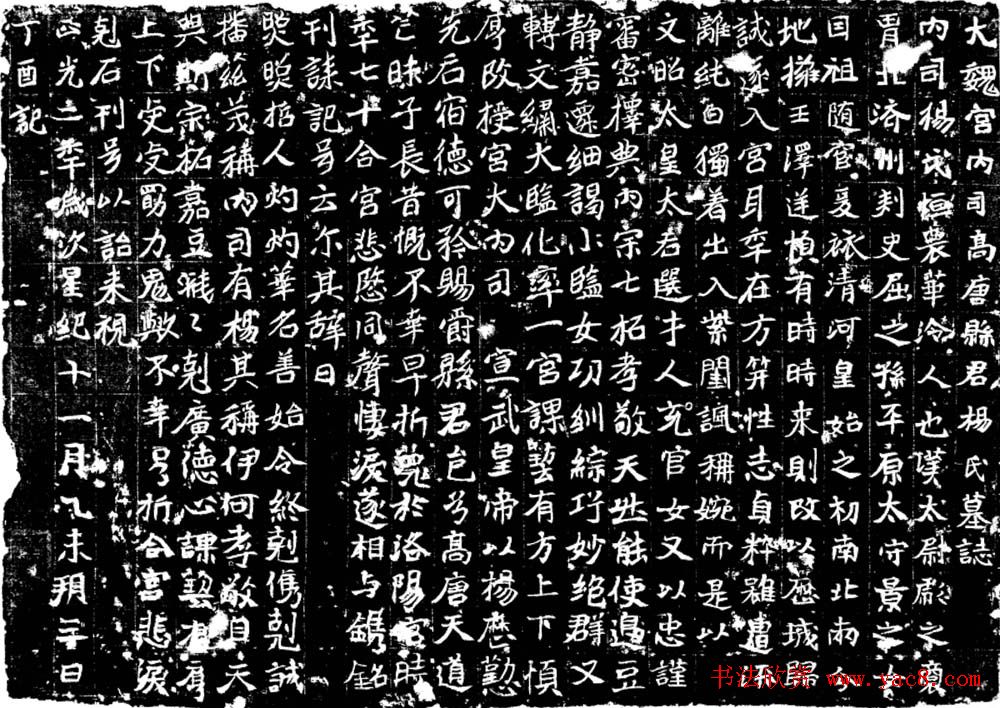 大魏宮內司高唐縣君楊氏墓誌
內司楊氏恒農華泠人也漢太尉之
胄北济州刾史屈之孫平原太守景之女
因祖随宦爰旅清河皇始之初南北兩
地擁王澤逆順有時時来則改以歷城歸
誠遂入宮耳年在方笄性志貞粹雖遭
離純白獨着出入紫閨諷稱婉而是以
文昭太皇太后選才人充官女又以忠謹
審密擇典內宗七祏孝敬天然能使邉豆
静嘉遷細謁小監女功紃綜巧妙絶群又
轉文繡大監化率一宮課藝有方上下順
厚改授宮大內司宣武皇帝以楊歷勤
先后宿德可矜賜爵縣君邑兮高唐天道
芒昧子長昔慨不幸早折薨於洛陽宮時
年七十合宮悲慜同聲悽淚遂相与鐫銘
刊誄記号云尔其辝曰
煚煚哲人灼灼華名善始令終剋儁剋誠
播兹茂稱內司有楊其稱伊何孝敬自天
典斯宗祏嘉豆濈〻剋廣德心課藝有
上下安安勠力鬼歟不幸早折合宮悲淚
剋石刊号以詒来視
正光二年歲次星紀十一月乙未朔三日
丁酉記
书法欣赏 www.yac8.com